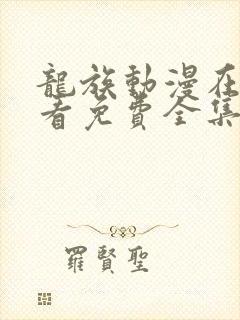 龍族動漫在
看免費全集
羅賢聖